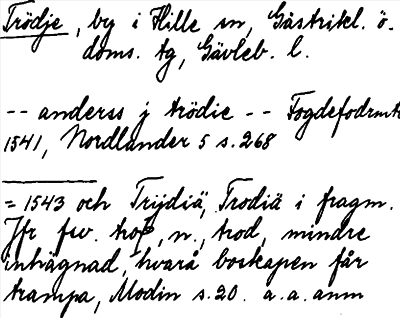 Trödje, by i Hille sn, Gästrikl. ö.
doms. tg, Gävleb. l.
-- anderss j trödie -- Fogdefodrmtl
1541, Nordlander 5 s. 268
= 1543 och Trijdiä, Trodiä i fragm.
Jfr fsv. troþ, n., trod, mindre
inhägnad, hvarå boskapen får
trampa, Modin s. 20. a. a. anm